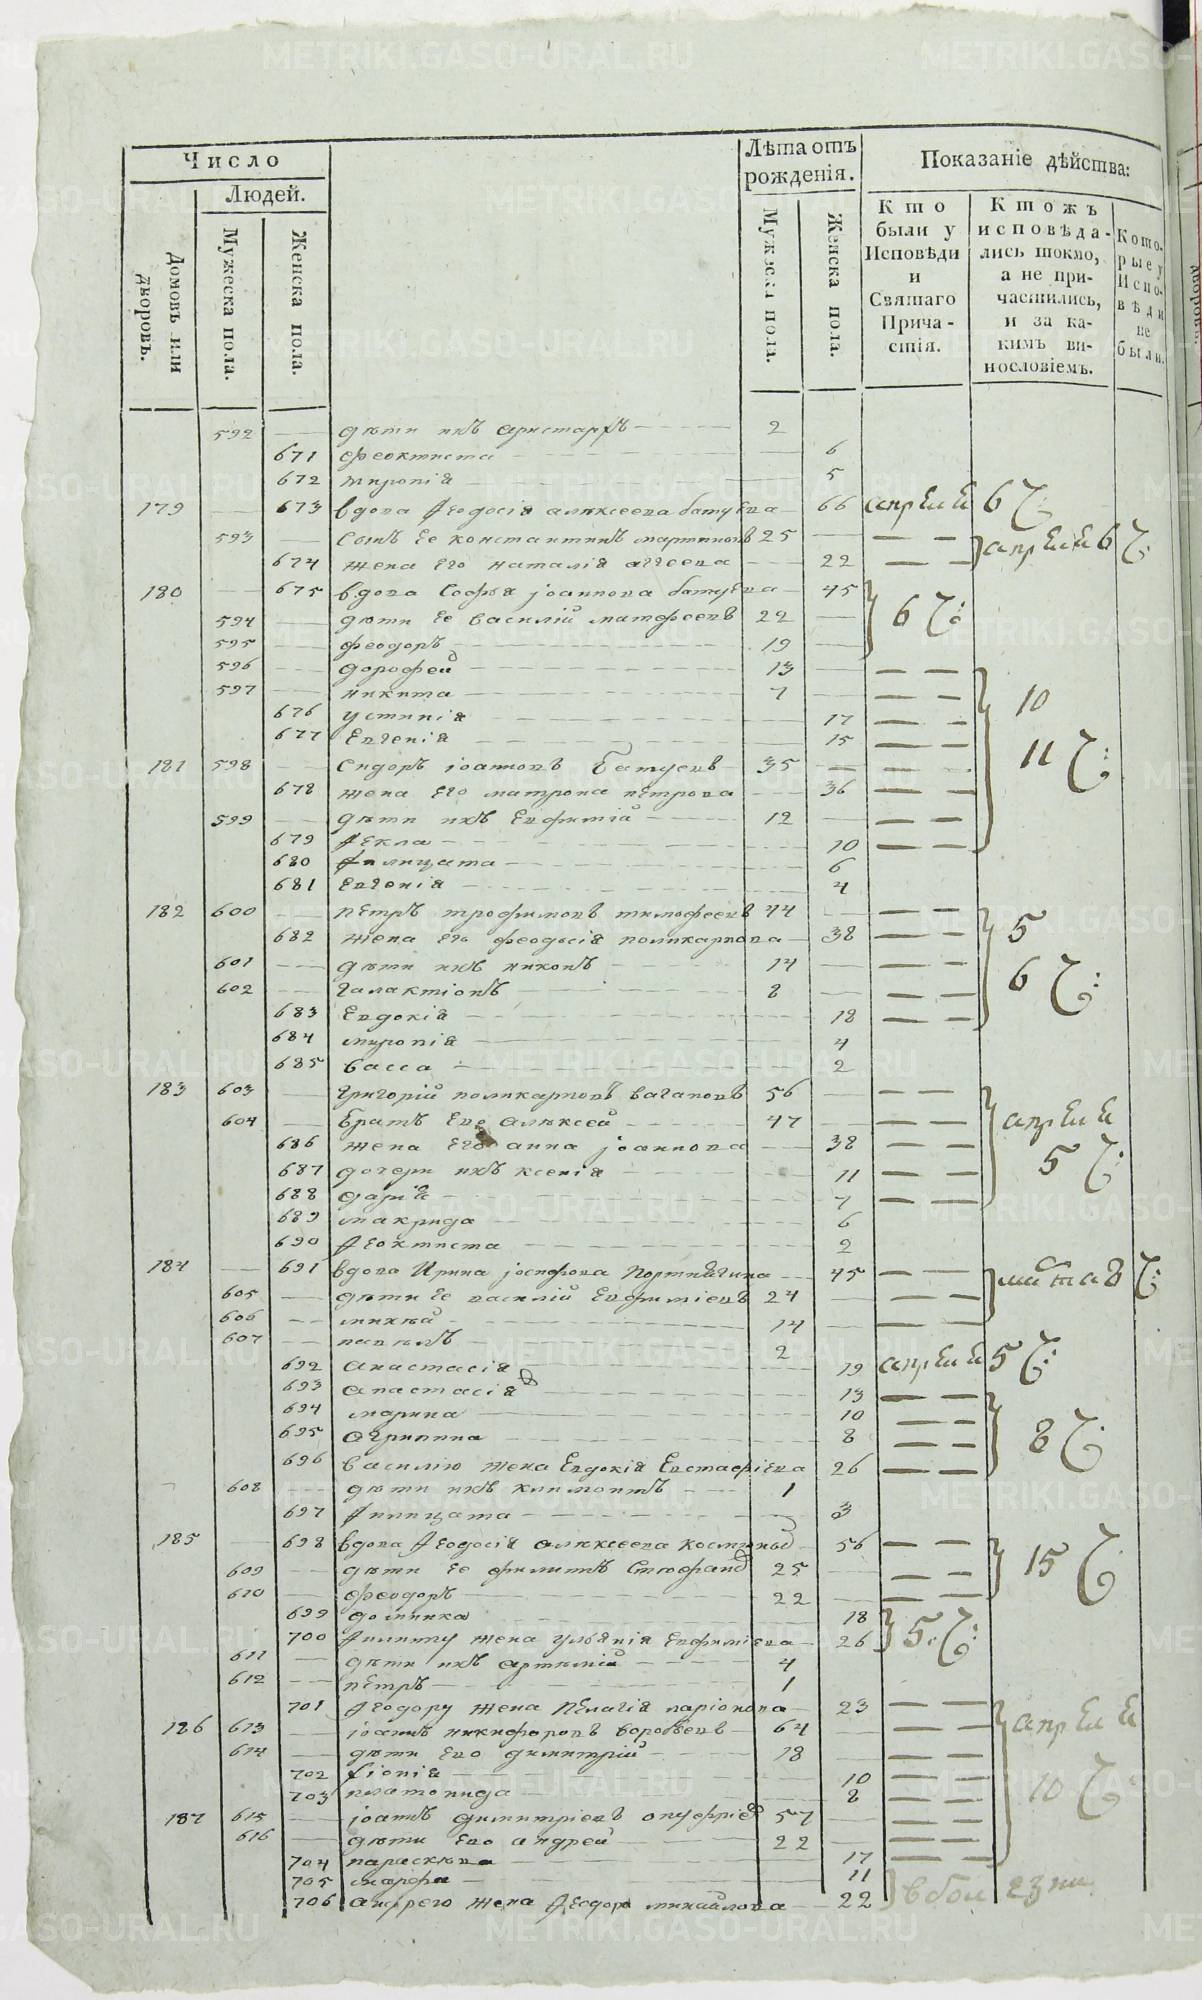 Число
Людей.
Домовъ или дворовъ.
Мужеска пола.
Женска пола.
Лѣта отъ рожденія.
Мужеска пола.
Женска пола.
Показаніе дѣйства:
Кто были у Исповѣди и Святаго Причастія.
Ктожъ исповѣдались токмо, а не причастились, и за какимъ винословіемъ.
Которые у Исповѣди не были.
592 дѣти ихъ Аристархъ 2
671 Феоктиста 6
672 Миропія 5
179 673 вдова Ѳеодосія Алѣксеева батуева 66 апрѣлѧ 6 Ч:
593 сынъ ее константинъ мартиновъ 25 апрѣлѧ 6 Ч:
674 жена его наталія аггеева 22
180 675 вдова Софья іоаннова батуева 45
594 дѣти ее василій матфеевъ 22 6 Ч:
595 феодоръ 19
596 дорофей 13
597 никита 7 10
676 устинія 17
677 Евгенія 15 11 Ч:
181 598 сидоръ іоанновъ батуевъ 35
678 жена его матрона пѣтрова 36
599 дѣти ихъ Евфимій 12
679 Ѳекла 10
680 Ѳилицата 6
681 Евгенія 4
182 600 пѣтръ трофимовъ тимофеевъ 44 5
682 жена его феодосія поликарпова 38
601 дѣти ихъ никонъ 14 6 Ч:
602 галактіонъ 8
683 Евдокія 18
684 миропія 4
685 васса 2
183 603 григорій поликарповъ вагановъ 56
604 братъ Его алѣксей 47 апрѣлѧ
686 жена Его анна іоаннова 38 5 Ч:
687 дочери ихъ ксенія 11
688 дарія 7
689 макрида 6
690 Ѳеоктиста 2
184 691 вдова Ирина іосифова Портнягина 45
605 дѣти ее василій Евфиміевъ 24
606 михѣй 14
607 павелъ 2
692 анастасія 19 апрѣлѧ 5 Ч:
693 анастасія 13
694 марина 10
695 агрипина 8 8 Ч:
696 василію жена Евдокія Евстафіева 26
608 дѣти ихъ климонтъ 1
697 Ѳилицата 3
185 698 вдова Ѳеодосія алѣксеева 56 15 Ч:
609 дѣти ее филипъ 25
610 феодоръ 22
699 домника 18 5 Ч:
700 Ѳилипу жена Ульянія Евфиміева 26
611 дѣти ихъ артѣмій 4
612 пѣтръ 1
701 Ѳеодору жена Пѣлагія ларіонова 23
186 613 іоаннъ никифоровъ воробьевъ 64 апрѣлѧ
614 дѣти его димитрій 18
702 Ѳіонія 10
703 платонида 8 10 Ч:
187 615 іоаннъ димитріевъ 57
616 дѣти его андрей 22
704 параскева 17
705 марфа 11
706 андрею жена Ѳеодора михайлова 22 в болезни